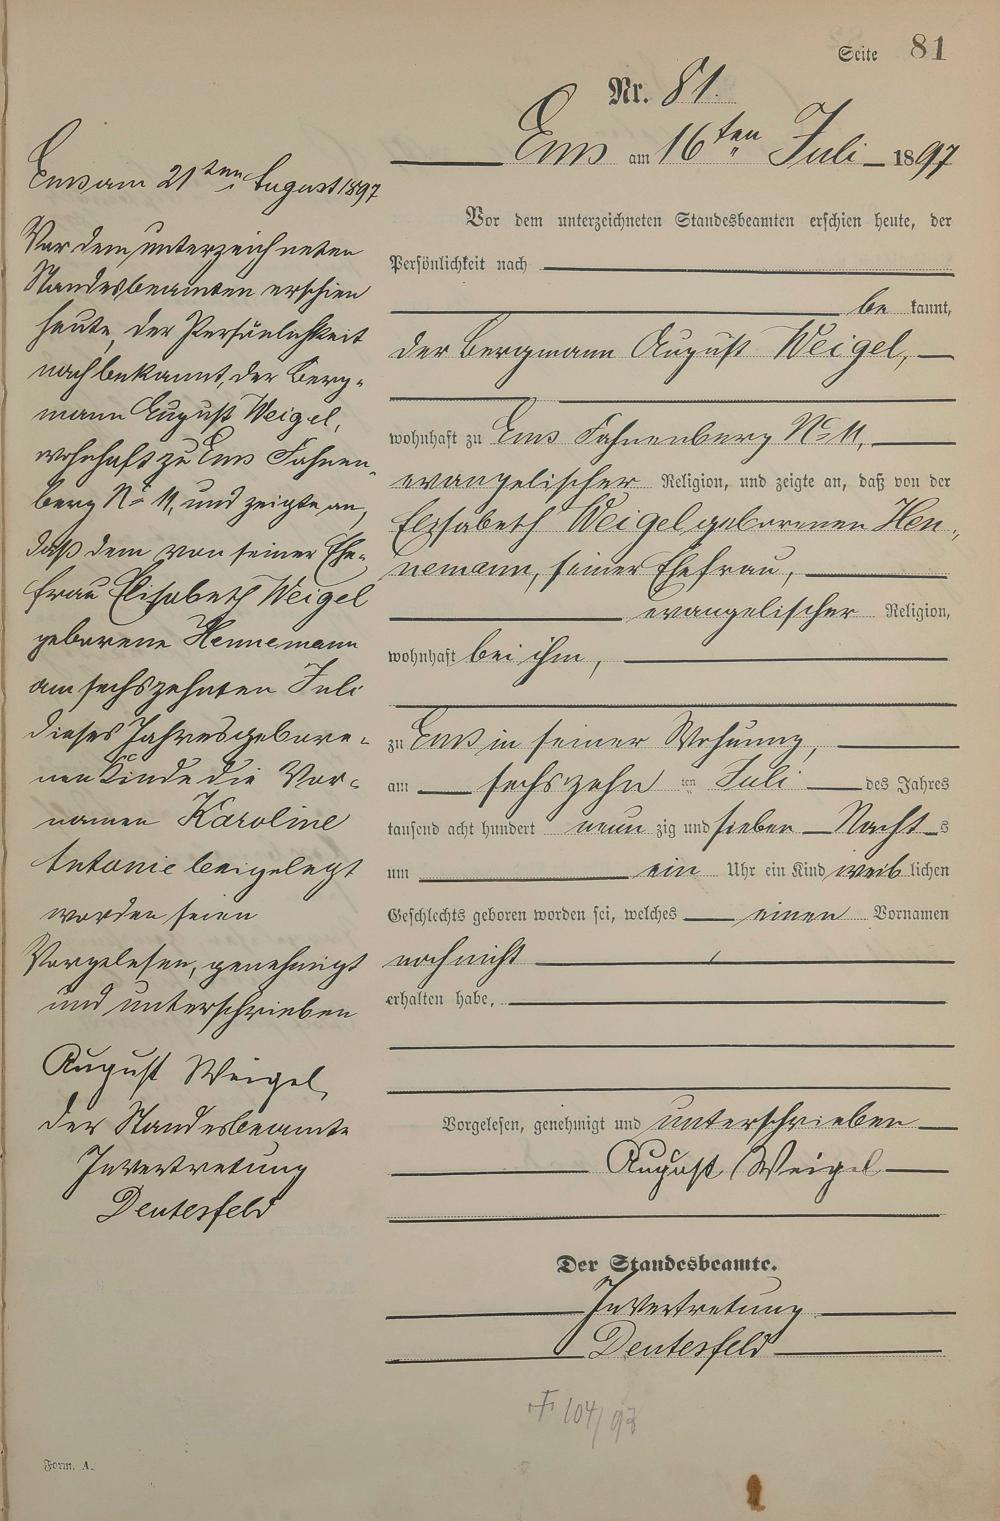 Seite 81
Nr. 81.
Ems am 16ten Juli 1897
Vor dem unterzeichneten Standesbeamten erschien heute, der
Persönlichkeit nach
be kannt,
der Bergmann August Weigel,
wohnhaft zu Ems Fahnenberg No 11,
evangelischer Religion, und zeigte an, daß von der
Elisabeth Weigel geborenen Hen-
nemann, seiner Ehefrau,
evangelischer Religion,
wohnhaft bei ihm,
zu Ems in seiner Wohnung,
am sechszehn ten Juli des Jahres
tausend acht hundert neun zig und sieben Nacht s
um ein Uhr ein Kind weib lichen
Geschlechts geboren worden sei, welches einen Vornamen
noch nicht
erhalten habe.
Vorgelesen, genehmigt und unterschrieben
August Weigel
Der Standesbeamte.
In Vertretung
Deutesfeld
Ems am 21ten August 1897
Vor dem unterzeichneten
Standesbeamten erschien
heute, der Persönlichkeit
nach bekannt, der Berg-
mann August Weigel,
wohnhaft zu Ems Fahnen-
berg No 11, und zeigte an,
daß dem von seiner Ehe-
frau Elisabeth Weigel
geborene Hennemann
am sechszehnten Juli
dieses Jahres gebore-
nen Kinde die Vor-
namen Karoline
Antonie beigelegt
worden seien
Vorgelesen, genehmigt
und unterschrieben
August Weigel
der Standesbeamte
In Vertretung
Deutesfeld
104/98
Form. A.